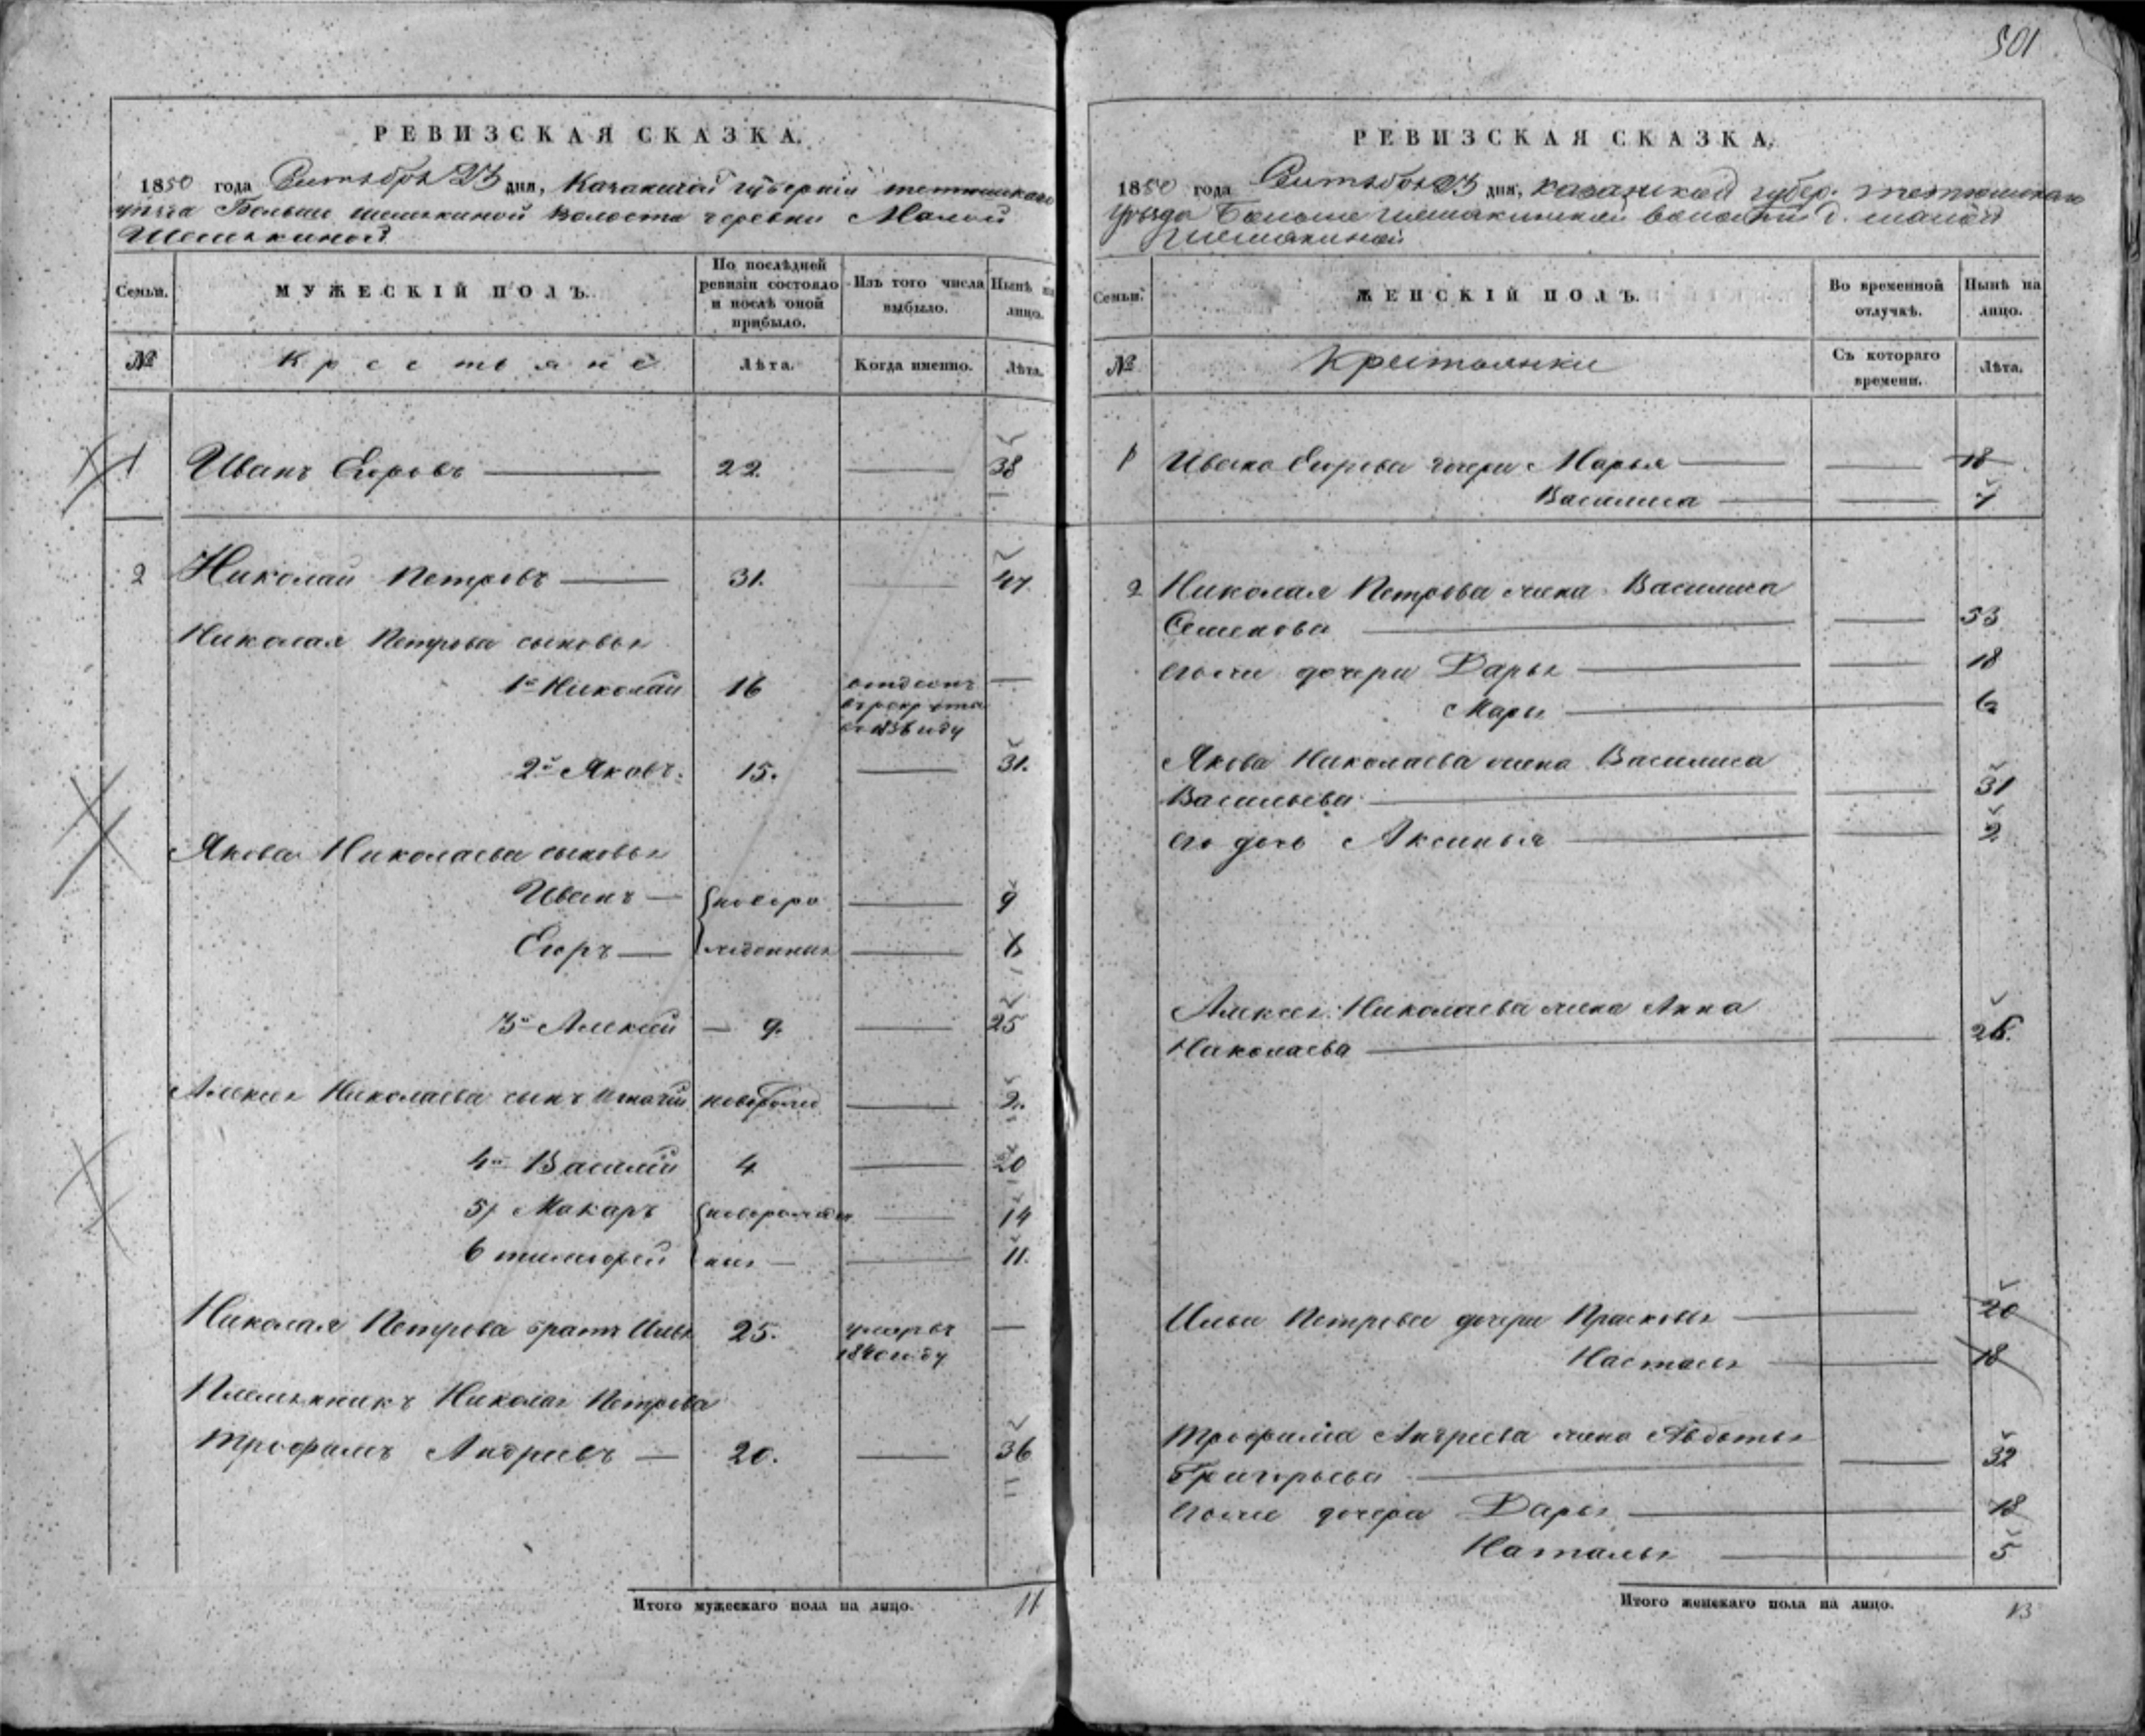 501
РЕВИЗСКАЯ СКАЗКА.
1850 года Сентября 23 дня, Казанской губернии тетюшскаго
уезда Больше шемякиной волости деревни Малой
Шемякиной
Семьи. МУЖЕСКІЙ ПОЛЪ. По послѣдней ревизіи состояло и послѣ оной прибыло. Изъ того числа выбыло. Нынѣ на лицо.
№ Крестьяне Лѣта. Когда именно. Лѣта.
1 Иванъ Егоровъ 22. 38
2 Николай Петровъ 31. 47.
Николая Петрова сыновья
1й Николай 16 отданъ в рекруты в 1836 году
2й Яковъ. 15. 31.
Якова Николаева сыновья
Иванъ новоро 9
Егоръ жденныя 6
3й Алексей 9. 25
Алексея Николаева сынъ Игнатий новорожд 2.
4й Василий 4 20
5й Макаръ новорожден 14
6 тимофей ныя 11.
Николая Петрова братъ Илья 25. умеръ 1840 году
Племянникъ Николая Петрова
Трофимъ Андреевъ 20. 36
Итого мужескаго пола на лицо. 11
РЕВИЗСКАЯ СКАЗКА.
1850 года Сентября 23 дня, казанской губер. тетюшскаго
уезда Больше шемякинской волости д. малой
шемякиной
Семьи. ЖЕНСКІЙ ПОЛЪ. Во временной отлучкѣ. Нынѣ на лицо.
№ Крестьянки Съ котораго времени. Лѣта.
1 Ивана Егорова дочери Марья 18
Василиса 7
2 Николая Петрова жена Василиса
Семенова 53
его же дочери Дарья 18
Марья 6
Якова Николаева жена Василиса
Васильева 31
его дочь Аксинья 2
Алексея Николаева жена Анна
Николаева 26.
Ильи Петрова дочери Прасковья 20
Настасья 18
Трофима Андреева жена Авдотья
Григорьева 32
его же дочери Дарья 18
Наталья 5
Итого женскаго пола на лицо. 13